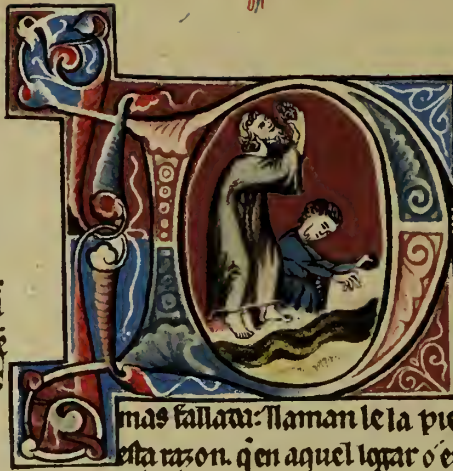 mas fallada: llaman le la pie
esta razon. q̃ en aquel logar o e